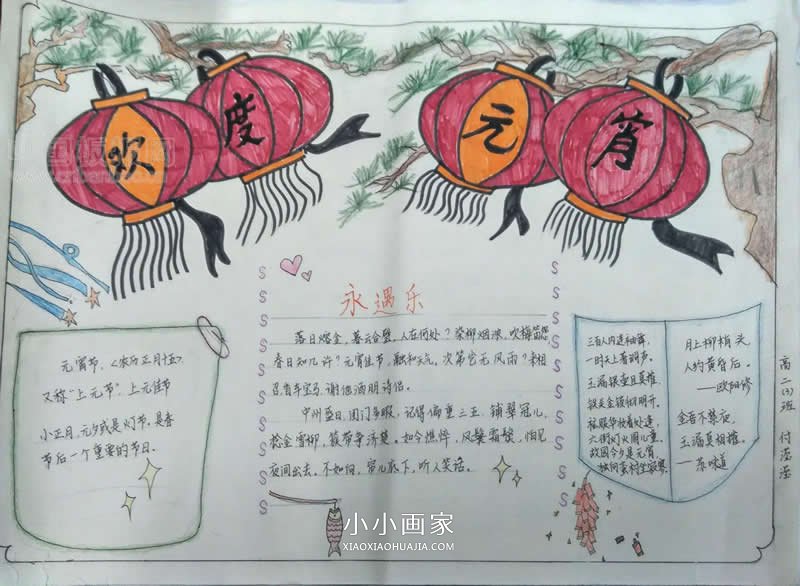 欢
度
元
宵
永遇乐
落日熔金，暮云合璧，人在何处？染柳烟浓，吹梅笛怨，
春日知几许？元宵佳节，融和天气，次第岂无风雨？来相
召香车宝马，谢他酒朋诗侣。
中州盛日，闺门多暇，记得偏重三五，铺翠冠儿，
捻金雪柳，簇带争济楚。如今憔悴，风鬟霜鬓，怕见
夜间出去。不如向，帘儿底下，听人笑语。
元宵节，（农历正月十五），
又称“上元节”，上元佳节
小正月，元夕或是灯节，是春
节后一个重要的节日。
三百内人连袖舞，
一时天上著词声。
玉漏银壶且莫催，
铁关金锁彻明开。
六街灯火闹儿童。
故园今夕是元宵
独向蛮村坐寂寥
月上柳梢头
人约黄昏后。
——欧阳修
金吾不禁夜，
玉漏莫相催。
——苏味道
高二（3）班 付滢滢
小小画家
XIAOXIAOHUAJIA.COM